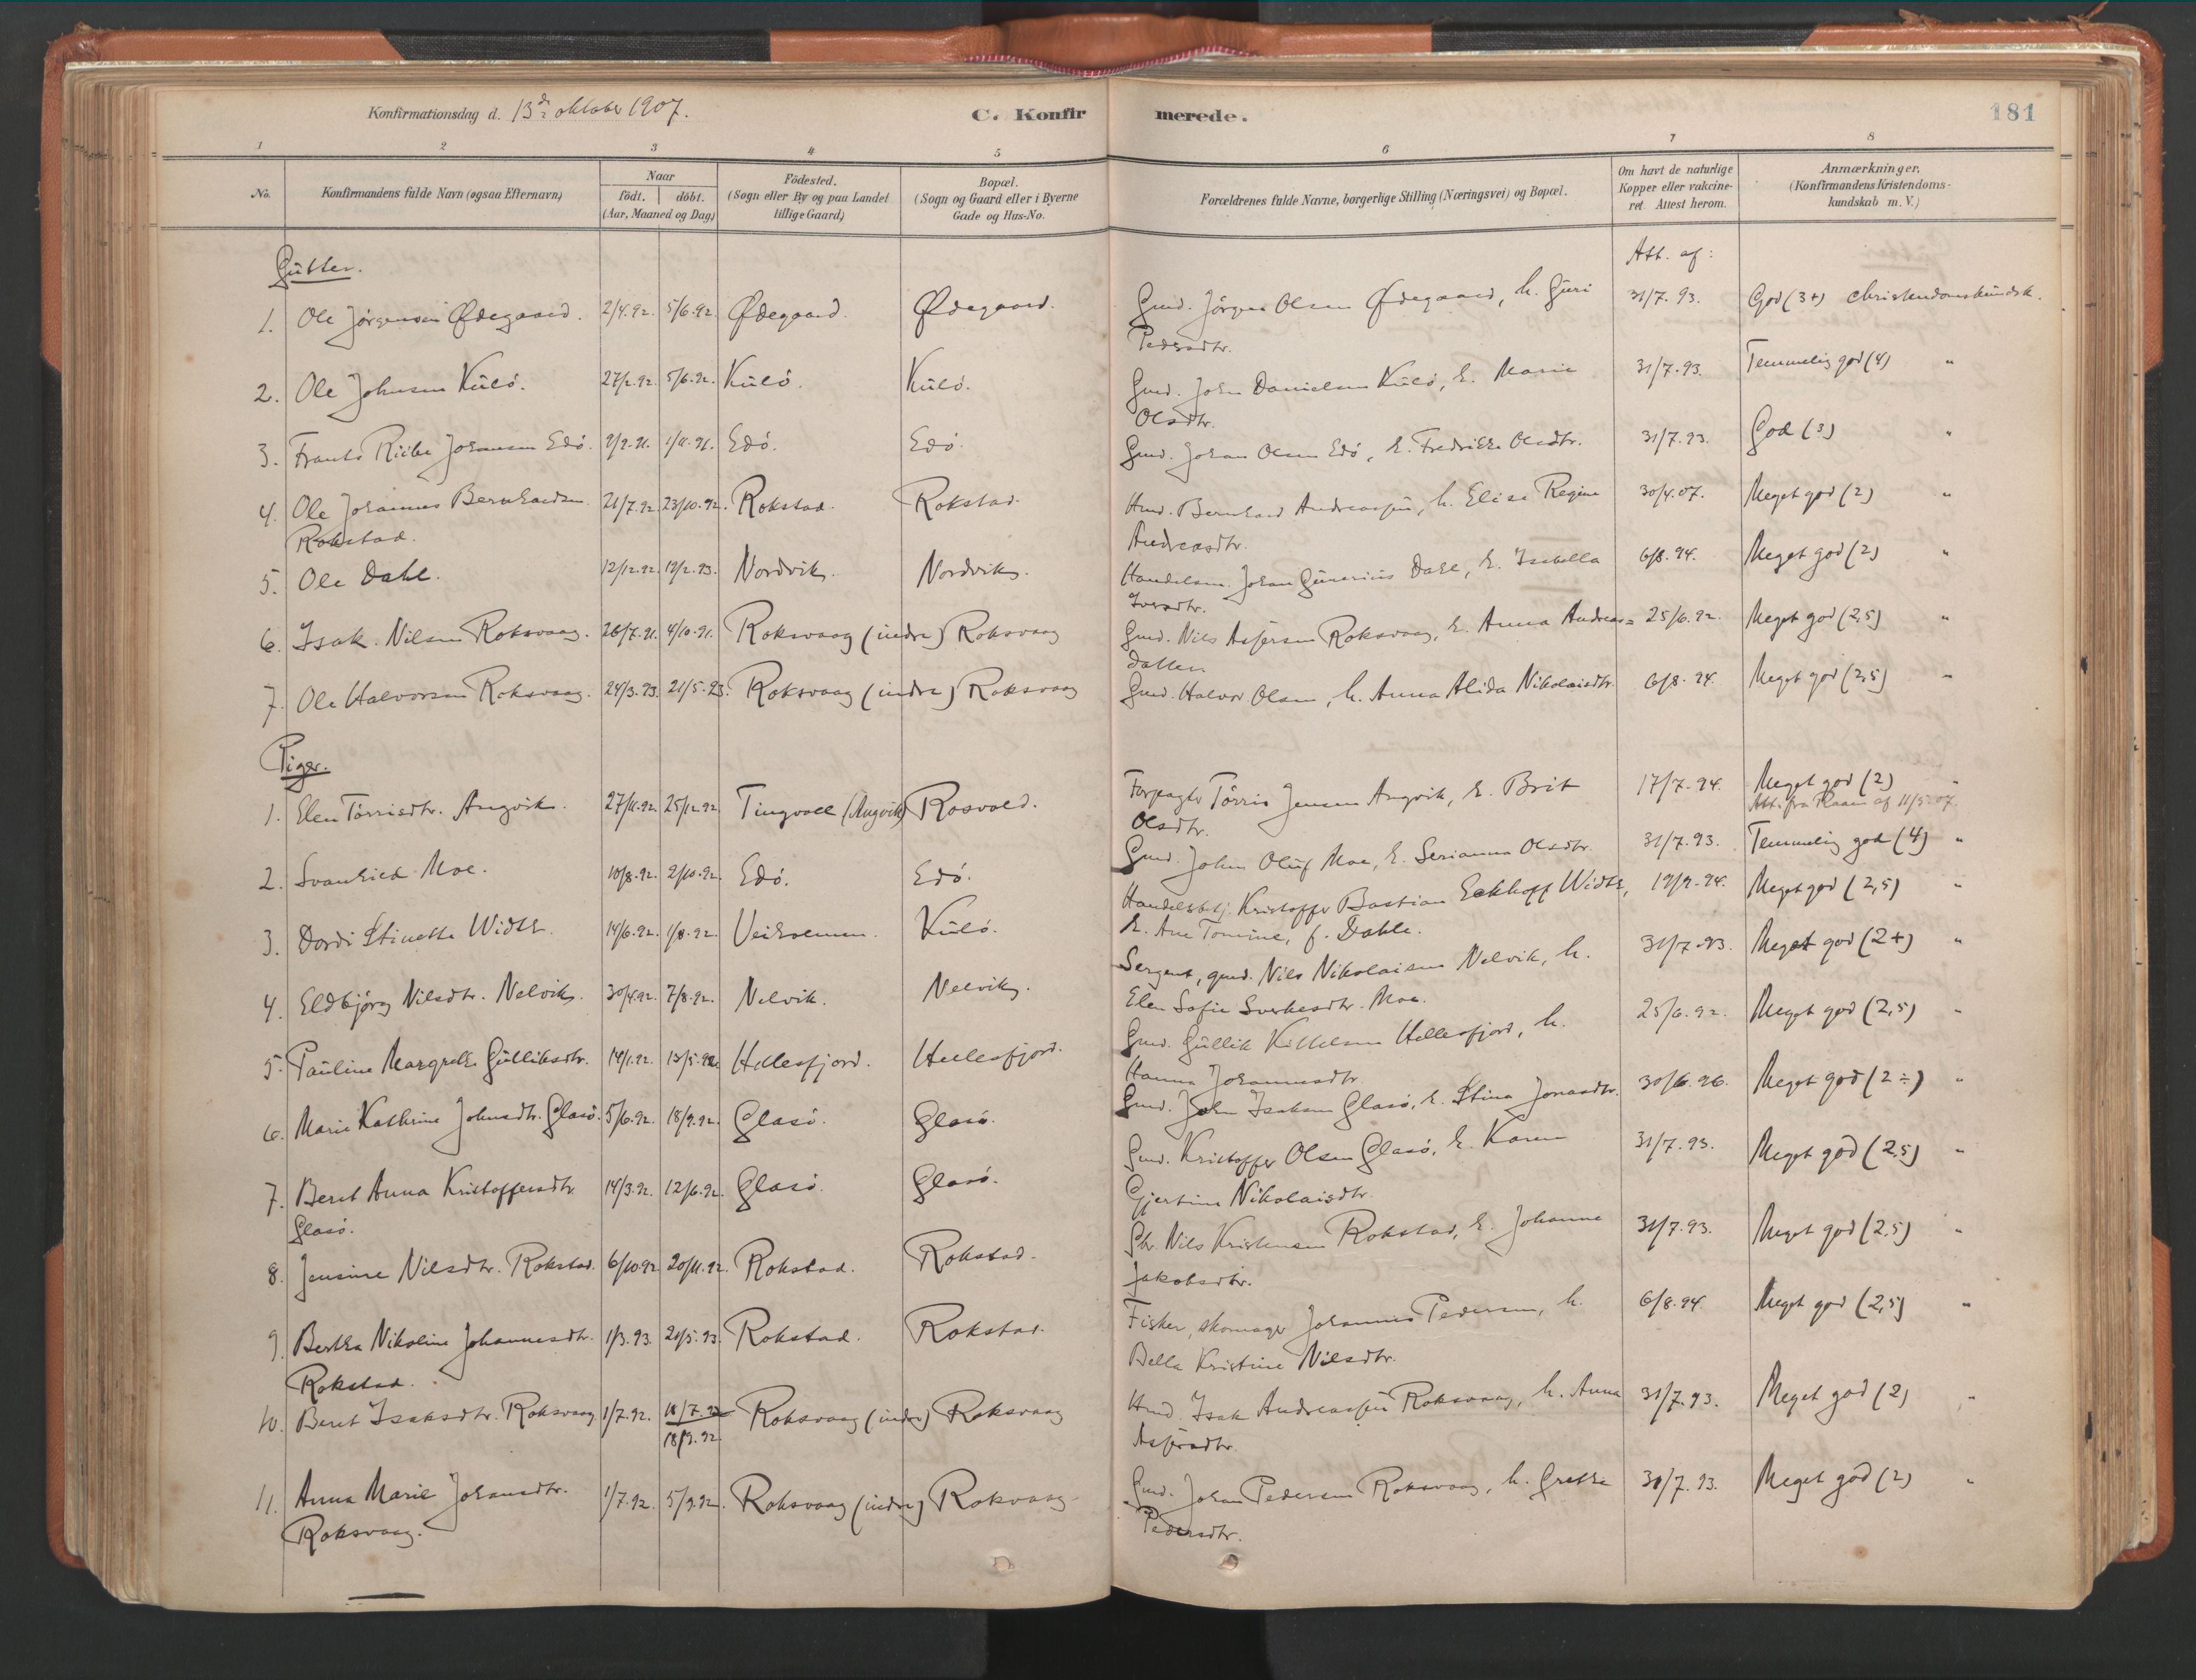 Konfirmationsdag d. 13de oktober 1907.
C. Konfirmerede.
181
1 2 3 4 5 6 7 8
No.
Konfirmandens fulde Navn (ogsaa Efternavn)
Naar
födt. döbt.
(Aar, Maaned og Dag)
Födested.
(Sogn eller By og paa Landet
tillige Gaard)
Bopæl.
(Sogn og Gaard eller i Byerne
Gade og Hus-No.
Forældrenes fulde Navne, borgerlige Stilling (Næringsvei) og Bopæl.
Om havt de naturlige
Kopper eller vakcine-
ret. Attest herom.
Anmærkninger.
(Konfirmandens Kristendoms-
kundskab m. V.)
Gutter.
Att. af:
1. Ole Jörgensen Ødegaard. 2/4.92. 5/6.92. Ødegaard. Ødegaard. Gmd. Jörgen Olsen Ødegaard, h. Guri 31/7.93. God (3+) christendomskundsk.
Pedersdtr.
2. Ole Johnsen Kulö. 27/2.92. 5/6.92. Kulö. Kulö. Gmd. John Danielsen Kulö, h. Marie 31/7.93. Temmelig god (4) "
Olsdtr.
3. Frants Riiber Johansen Edö. 9/9.91. 1/11.91. Edö. Edö. Gmd. Johan Olsen Edö, h. Fredrikke Olsdtr. 31/7.93. God (3) "
4. Ole Johannes Bernhardsen 21/7.92. 23/10.92. Rokstad. Rokstad. Hmd. Bernhard Andreassen, h. Elise Regine 30/4.07. Meget god (2) "
Rokstad.
Andreasdtr.
5. Ole Dahl. 12/12.92. 19/2.93. Nordvik. Nordvik. Handelsm. Johan Gunerius Dahl, h. Isabella 6/8.94. Meget god (2) "
Iversdtr.
6. Isak Nilsen Roksvaag. 28/7.91. 4/10.91. Roksvaag (indre) Roksvaag Gmd. Nils Asfersen Roksvaag, h. Anna Andreas= 25/6.92. Meget god (2,5) "
datter.
7. Ole Halvorsen Roksvaag. 24/3.93. 21/5.93. Roksvaag (indre) Roksvaag Gmd. Halvor Olsen, h. Anna Alida Nikolaisdtr. 6/8.94. Meget god (2,5) "
Piger.
1. Elen Törrisdtr. Angvik. 27/11.92. 25/12.92. Tingvoll (Angvik) Rosvold. Forpagter Törris Jensen Angvik, h. Brit 17/7.94. Meget god (2) "
Olsdtr. Att. fra Kaan af 11/5 07.
2. Svanhild Moe. 10/8.92. 2/10.92. Edö. Edö. Gmd. John Oluf Moe, h. Serianna Olsdtr. 31/7.93. Temmelig god (4) "
3. Dordi Stinette Width. 14/6.92. 1/8.92. Veiholmen. Kulö. Handelsbetj. Kristoffer Bastian Eckhoff Width, 19/9.94. Meget god (2,5) "
h. Ane Tomine, f. Dahle.
4. Eldbjörg Nilsdtr. Nelvik. 30/4.92. 7/8.92. Nelvik. Nelvik. Sergent, gmd. Nils Nikolaisen Nelvik, h. 31/7.93. Meget god (2+) "
Elen Sofie Sverkesdtr. Moe.
5. Pauline Margrethe Gulliksdtr. 14/1.92. 15/5.92. Hellesfjord. Hellesfjord. Gmd. Gullik Kittelsen Hellesfjord, h. 25/6.92. Meget god (2,5) "
Hanna Johannesdtr.
6. Marie Kathrine Johnsdtr. Glasö. 5/6.92. 18/9.92. Glasö. Glasö. Gmd. John Isaksen Glasö, h. Stina Jonasdtr. 30/6.96. Meget god (2÷) "
7. Beret Anna Kristoffersdtr. 14/3.92. 12/6.92. Glasö. Glasö. Gmd. Kristoffer Olsen Glasö, h. Karen 31/7.93. Meget god (2,5) "
Glasö.
Gjertine Nikolaisdtr.
8. Jensine Nilsdtr. Rokstad. 6/10.92. 20/11.92. Rokstad. Rokstad. Gbr. Nils Kristensen Rokstad, h. Johanne 31/7.93. Meget god (2,5) "
Jakobsdtr.
9. Bertha Nikoline Johannesdtr. 1/3.93. 21/5.93. Rokstad. Rokstad. Fisker, skomager Johannes Pedersen, h. 6/8.94. Meget god (2,5) "
Rokstad.
Bella Kristine Nilsdtr.
10. Beret Isaksdtr. Roksvaag. 1/7.92. 18/7.92 Roksvaag (indre) Roksvaag Hmd. Isak Andreassen Roksvaag, h. Anna 31/7.93. Meget god (2) "
18/9.92.
Asfersdtr.
11. Anna Marie Johansdtr. 1/7.92. 5/9.92. Roksvaag (indre) Rokvaag Gmd. Johan Pedersen Roksvaag, h. Grethe 31/7.93. Meget god (2) "
Roksvaag.
Pedersdtr.